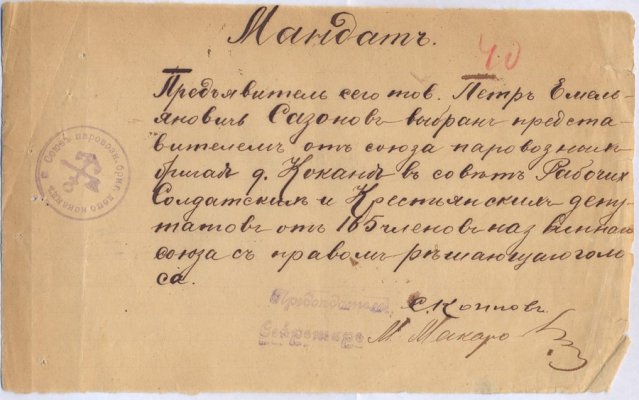 Мандатъ.
40
Предъявитель сего тов. Петръ Емель
яновичъ Сазоновъ выбранъ предста
вителемъ отъ союза паровозныхъ
бригадъ д. Кокандъ въ совѣтъ Рабочихъ
Солдатскихъ и Крестьянскихъ депу
татовъ отъ 165 членовъ названнаго
союза съ правомъ рѣшающаго голо
са.
Предсѣдатель
Секретарь М. Макаро
Союзъ паровозн. бриг. депо Кокандъ